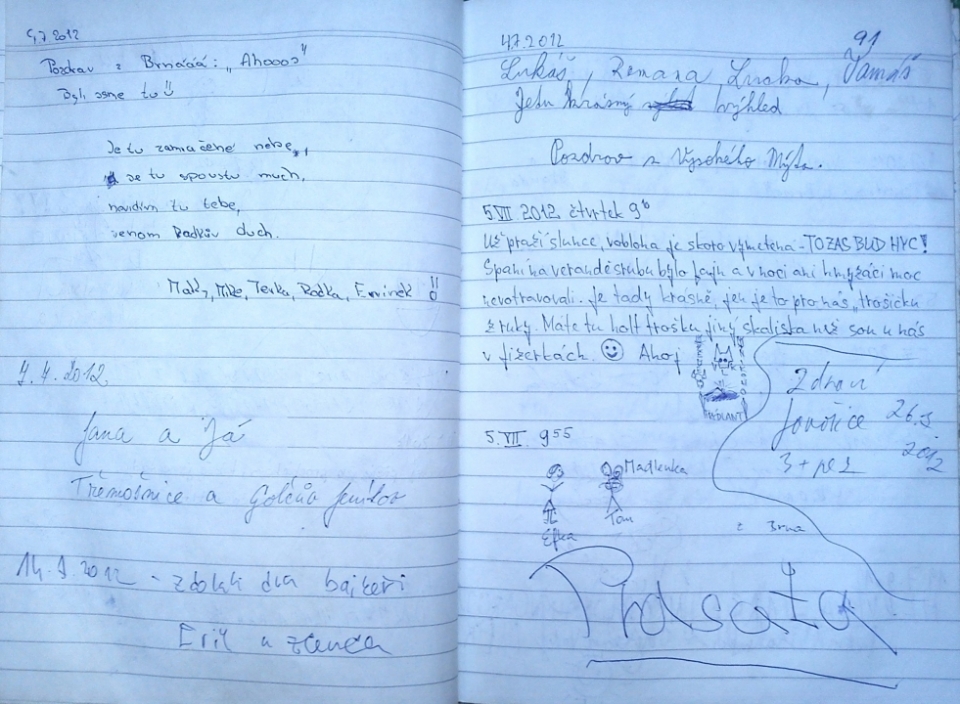 5,7.2012
Pozdrav z Brnááá: „Ahooo3"
Byli jsme tu
Je tu zamračené nebe,
Je tu spoustu much,
nevidím tu tebe,
jenom Radkův duch.
Mak, Mike, Terka, Radka, Ervínek !!
7.7.2012
Jana a Já
Třemošnice a Golčův Jeníkov
14.7.2012 - zdolali dva bajkeři
Eril a zdenda
4.7.2012
91
Lukáš, Romana, Tamáš
Jetu krásný výhled
Pozdrav z Vysokého Mýta.
5 VII 2012 čtvrtek 9
Už praží slunce, vobloha je skoro vymetena - TO ZAS BUD HYC!
Spaní na verandě srubu bylo fajn a v noci ani hmyzáci moc
nevotravovali. Je tady krásně, jen je to pro nás „trošičku
z ruky. Máte tu holt trošku jiný skaliska než sou u nás
v jizerkách. Ahoj
FRÝDLANT
Zdraví
Javořice
3 + pes
26.8
2012
5. VII. 9 55
Madlenka
Tom
Efka
z Brna
Phasata